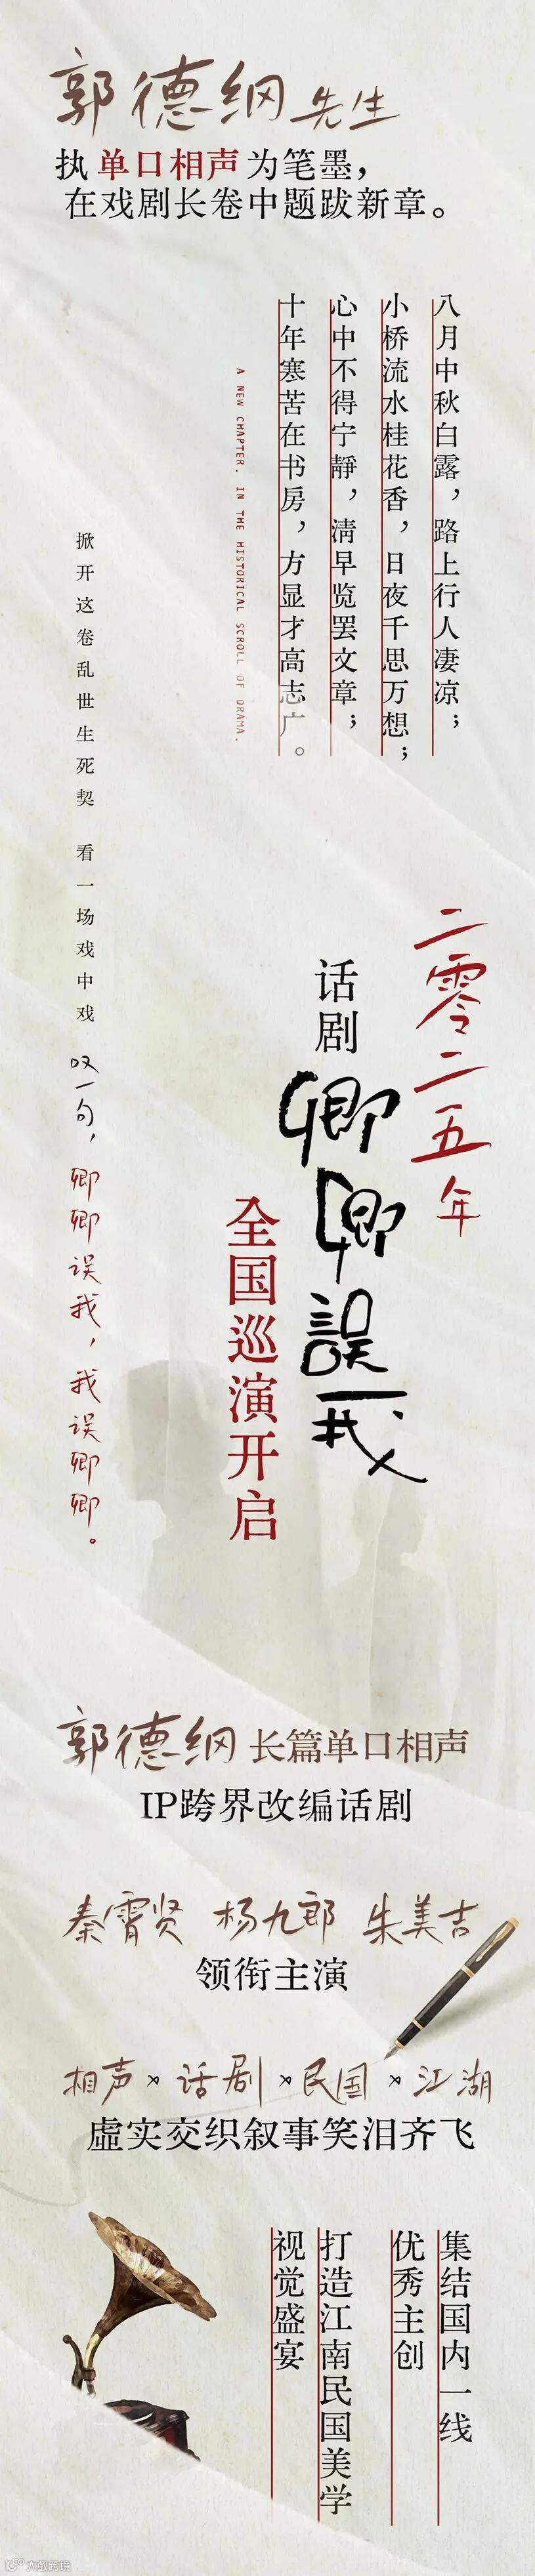 郭德纲先生
执单口相声为笔墨，
在戏剧长卷中题跋新章。
八月中秋白露，路上行人凄凉；
小桥流水桂花香，日夜千思万想；
心中不得宁静，清早览罢文章；
十年寒苦在书房，方显才高志广。
A NEW CHAPTER. IN THE HISTORICAL SCROLL OF DRAMA.
掀开这卷乱世生死契 看一场戏中戏
叹一句，卿卿误我，我误卿卿。
二零二五年
话剧
卿卿誤我
全国巡演开启
郭德纲长篇单口相声
IP跨界改编话剧
秦霄贤 杨九郎 朱美吉
领衔主演
相声×话剧×民国×江湖
虚实交织叙事笑泪齐飞
集结国内一线
优秀主创
打造江南民国美学
视觉盛宴
大数跨境